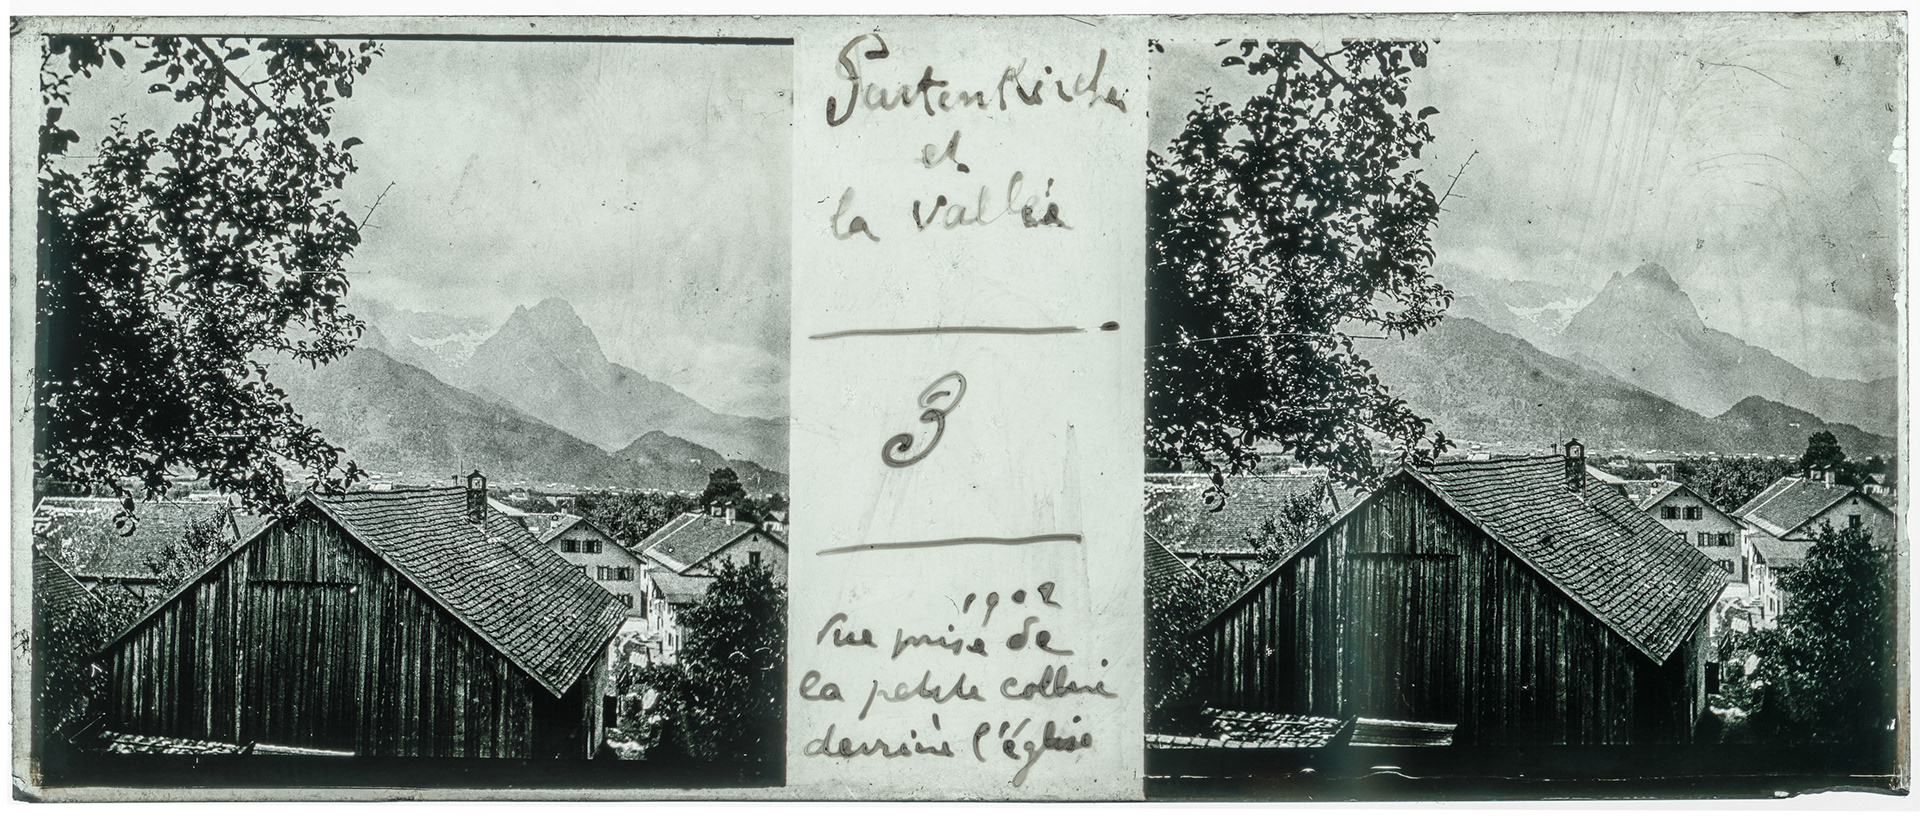 Partenkirchen
et
la vallée
3
1902
Vue prise de
la petite colline
derrière l'église